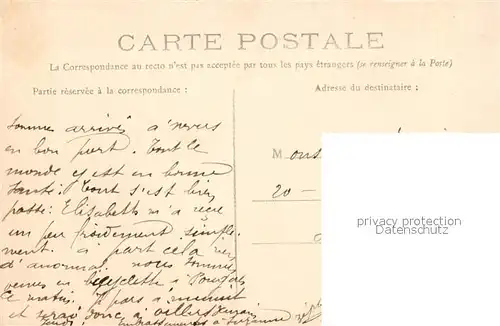 CARTE POSTALE
La Correspondance au recto n'est pas acceptée par tous les pays étrangers (se renseigner à la Poste)
Partie réservée à la correspondance :
Adresse du destinataire :
sommes arrivés à
en bon port. Tout le
monde y est en bonne
santé. Tout s'est bien
passé : Elisabeth m'a reçu
un peu froidement simple-
ment. à part cela rien
d'anormal nous sommes
venus en bicyclette à
ce matin.
et serai donc à
Mons
20 -
privacy protection
Datenschutz